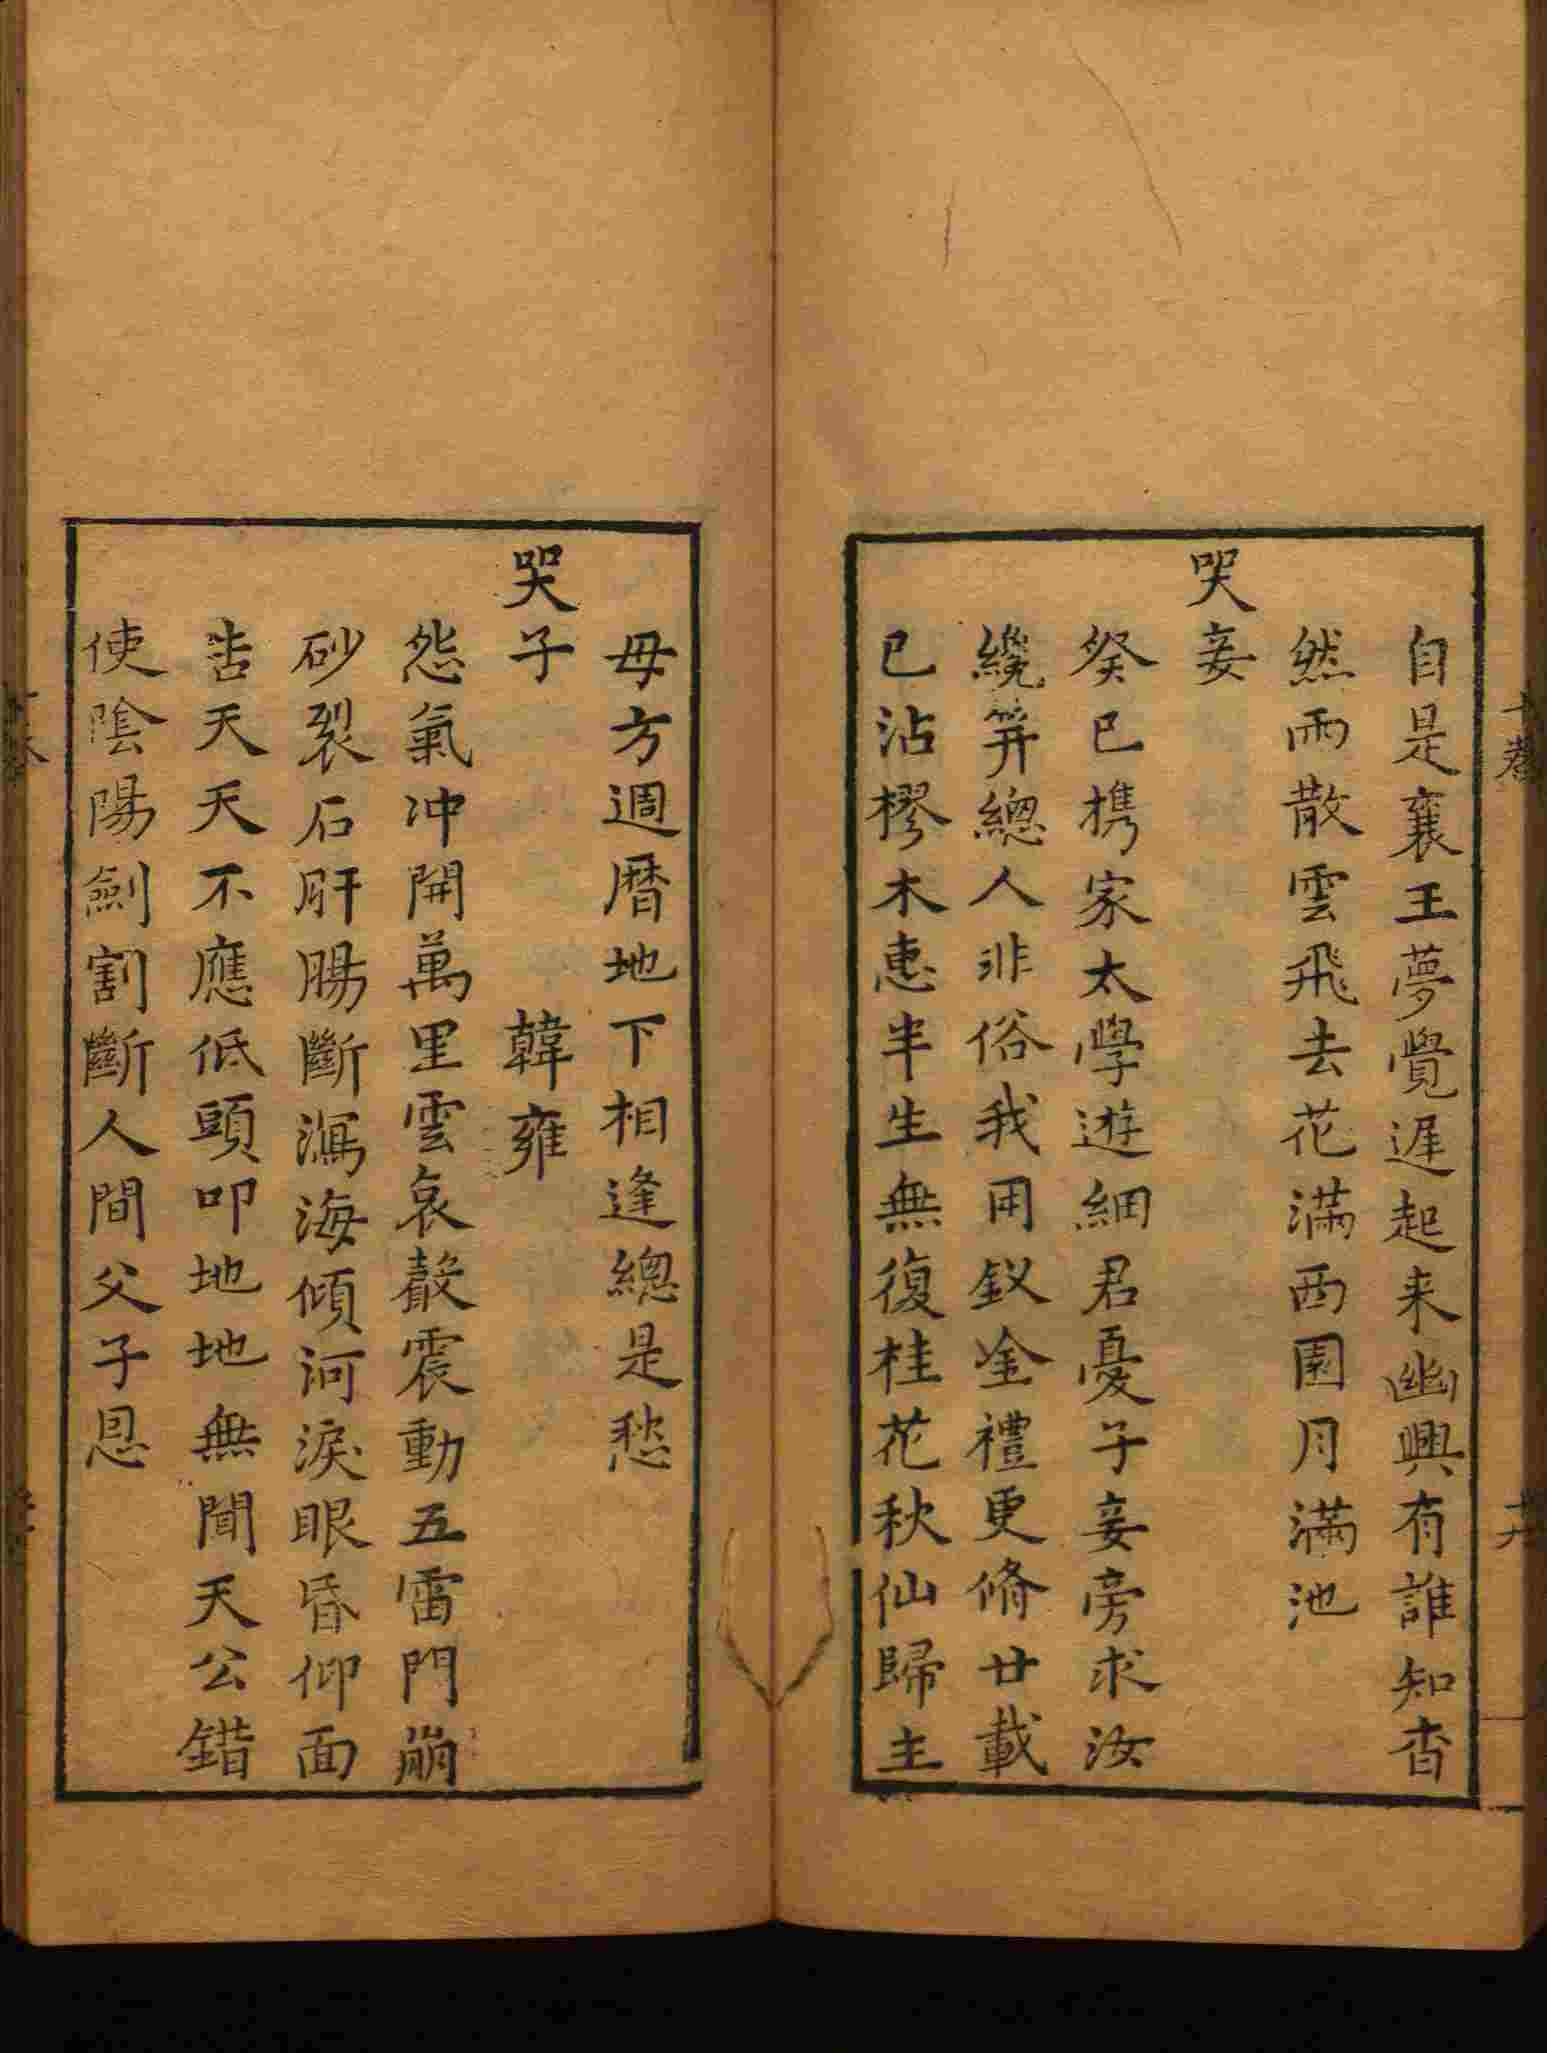 自是襄王夢覺遲起来幽興有誰知杳
然雨散雲飛去花滿西園月滿池
哭妾
癸巳携家太學遊細君憂子妾旁求汝
纔笄總人非俗我用釵金禮更脩廿載
已沾樛木惠半生無復桂花秋仙歸主
母方週曆地下相逢總是愁
哭子 韓雍
怨氣冲開萬里雲哀聲震動五雷門崩
砂裂石肝腸斷瀉海傾河淚眼昏仰面
告天天不應低頭叩地地無聞天公錯
使陰陽劍割斷人間父子恩